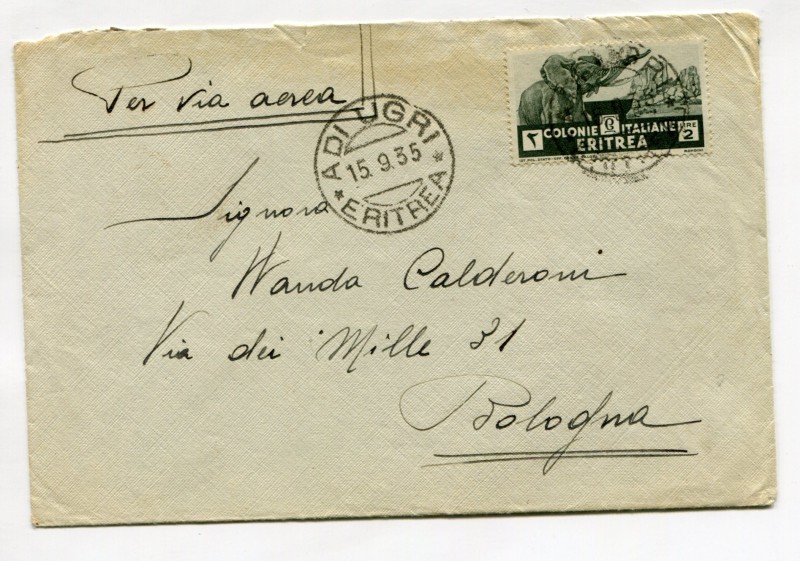 Per via aerea
ADI UGRI
15.9.35
* ERITREA *
٢ COLONIE ITALIANE LIRE
ERITREA 2
Signora
Wanda Calderoni
Via dei Mille 31
Bologna